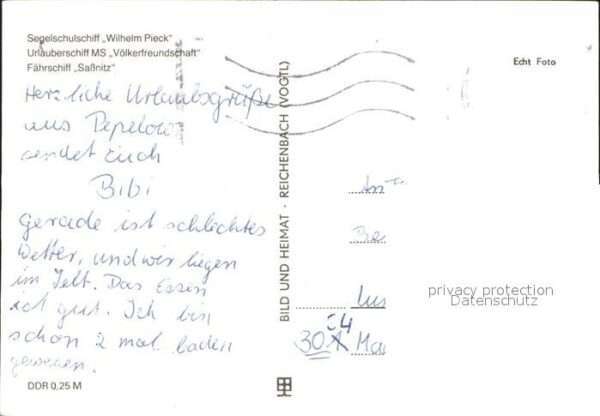 Segelschulschiff „Wilhelm Pieck"
Urlauberschiff MS „Völkerfreundschaft"
Fährschiff „Saßnitz"
Echt Foto
Herzliche Urlaubsgrüße
aus Pepelow
sendet Euch
Bibi
gerade ist schlechtes
Wetter, und wir liegen
im Zelt. Das Essen
ist gut. Ich bin
schon 2 mal baden
gewesen.
DDR 0,25 M
BILD UND HEIMAT · REICHENBACH (VOGTL)
An
Be
privacy protection
Datenschutz
30
Ma